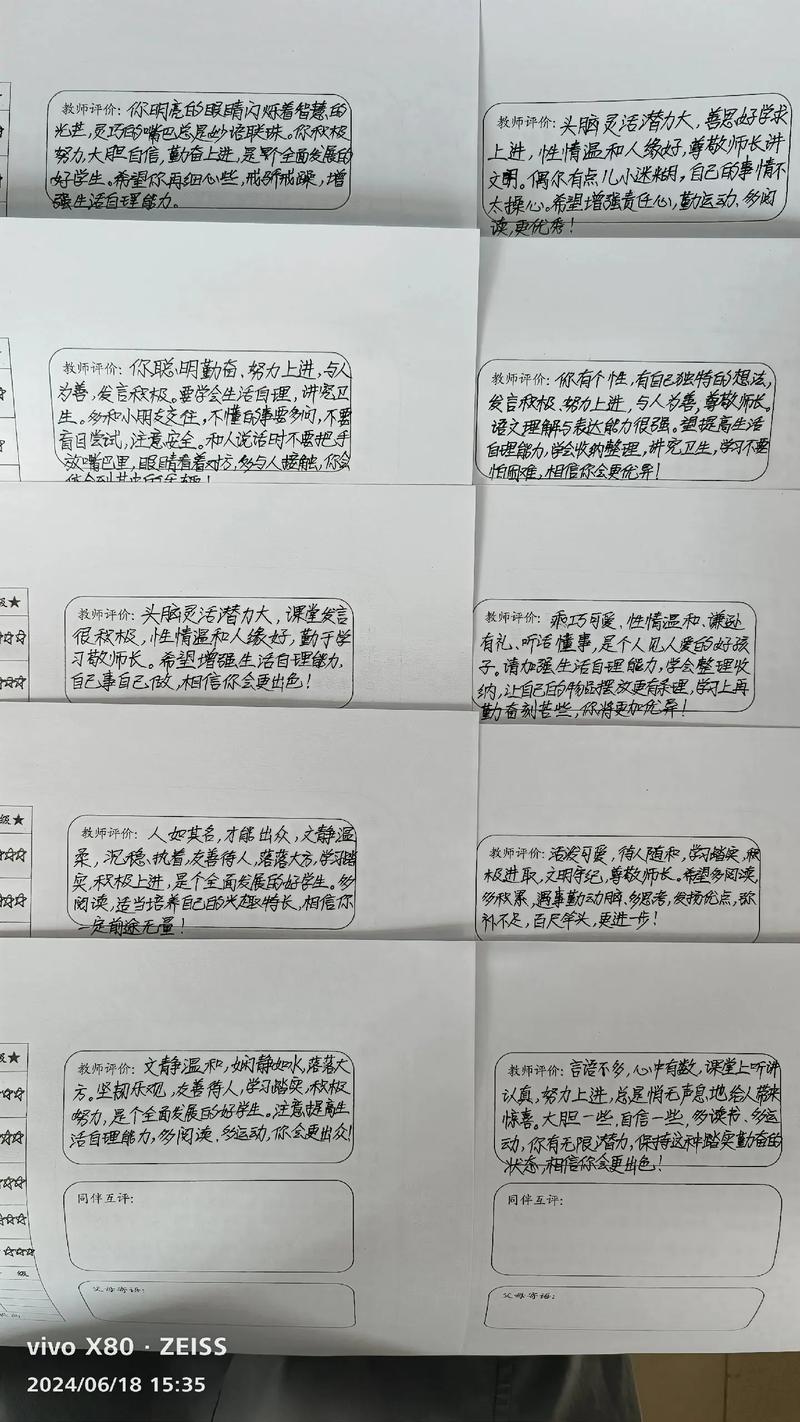 教师评价：你明亮的眼睛闪烁着智慧的
光芒，灵巧的嘴巴总是妙语联珠。你积极
努力，大胆自信，勤奋上进，是个全面发展的
好学生。希望你再细心些，戒骄戒躁，增
强生活自理能力。
教师评价：头脑灵活潜力大，善思好学求
上进，性情温和人缘好，尊敬师长讲
文明。偶尔有点儿小迷糊，自己的事情不
太操心。希望增强责任心，勤运动、多阅
读，更优秀！
教师评价：你聪明勤奋、努力上进，与人
为善，发言积极。要学会生活自理，讲究卫
生。多和小朋友交往，不懂的事要多问，不要
盲目尝试，注意安全。和人说话时不要把手
放嘴巴里，眼睛看着对方，多与人接触，你会
教师评价：你有个性，有自己独特的想法，
发言积极、努力上进，与人为善，尊敬师长。
语文理解与表达能力很强。望提高生活
自理能力，学会收纳整理，讲究卫生，学习不要
怕困难，相信你会更优异！
级★
教师评价：头脑灵活潜力大，课堂发言
很积极，性情温和人缘好，勤于学
习敬师长。希望增强生活自理能力，
自己事自己做，相信你会更出色！
教师评价：乖巧可爱、性情温和、谦逊
有礼、听话懂事，是个人见人爱的好孩
子。请加强生活自理能力，学会整理收
纳，让自己的物品摆放更有条理，学习上再
勤奋刻苦些，你将更加优异！
级★
教师评价：人如其名，才能出众，文静温
柔，沉稳、执着，友善待人，落落大方，学习踏
实，积极上进，是个全面发展的好学生。多
阅读，适当培养自己的兴趣特长，相信你
一定前途无量！
教师评价：活泼可爱，待人随和，学习踏实，积
极进取，文明守纪，尊敬师长。希望多阅读，
多积累，遇事勤动脑、多思考，发扬优点，弥
补不足，百尺竿头，更进一步！
级★
教师评价：文静温和，娴静如水，落落大
方。坚韧乐观，友善待人，学习踏实，积极
努力，是个全面发展的好学生。注意提高生
活自理能力，多阅读、多运动，你会更出众！
教师评价：言语不多，心中有数，课堂上听讲
认真，努力上进，总是悄无声息地给人带来
惊喜。大胆一些，自信一些，多读书、多运
动，你有无限潜力，保持这种踏实勤奋的
状态，相信你会更出色！
同伴互评：
同伴互评：
父母寄语：
父母寄语：
vivo X80 · ZEISS
2024/06/18 15:35